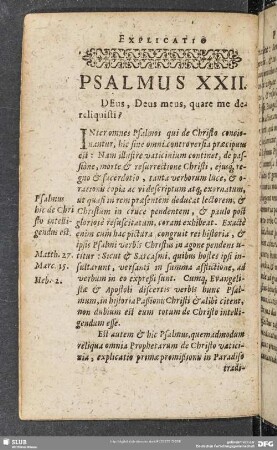 EXPLICATIO
PSALMUS XXII.
DEus, Deus meus, quare me de-
reliquisti?
INter omnes Psalmos qui de Christo concin-
nantur, hic sine omni controversia præcipuus
est: Nam illustre vaticinium continet, de pas-
sione, morte & resurrectione Christi, ejusq; reg-
no & sacerdotio, tanta verborum luce, & o-
rationis copia ac vi descriptum atq; exornatum,
ut quasi in rem præsentem deducat lectorem, &
Christum in cruce pendentem, & paulo post
gloriose resuscitatum, coram exhibeat. Exacte
enim cum hac pictura congruit res historia, &
ipsis Psalmi verbis Christus in agone pendens u-
titur: Sicut & Sarcasmi, quibus hostes ipsi in-
sultarunt, versanti in summa afflictione, ad
verbum in eo expressi sunt. Cumq; Evangeli-
stæ & Apostoli disertis verbis hunc Psal-
mum, in historia Passionis Christi & alibi citent,
non dubium est eum totum de Christo intelli-
gendum esse.
Est autem & hic Psalmus, quemadmodum
reliqua omnia Prophetarum de Christo vatici-
nia, explicatio primæ promissionis in Paradiso
tradi-
Psalmus
hic de Chri-
sto intelli-
gendus est.
Matth. 27.
Marc. 15.
Hebr. 2.
SLUB
DFG